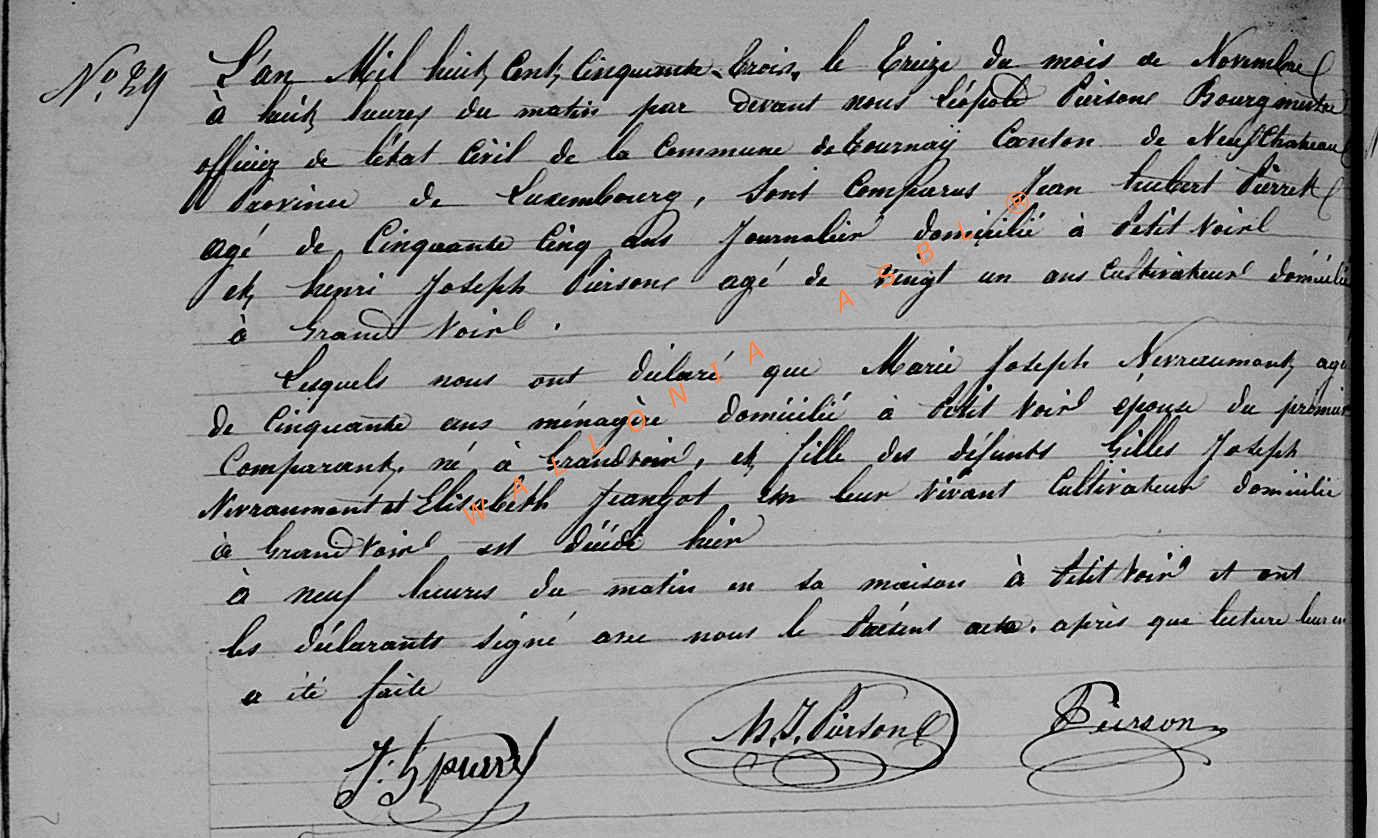 No. 29
L'an Mil huit Cent Cinquante-trois, le treize du mois de Novembre
à huit heures du matin par devant nous Léopold Pierson Bourgmestre
officier de l'état Civil de la Commune de tournay Canton de Neufchateau
Province de Luxembourg, sont Comparus Jean hubert Pierret
agé de Cinquante Cinq ans Journalier domicilié à Petit Voir
et henri Joseph Pierson agé de vingt un ans Cultivateur domicilié
à Grand Voir.
Lesquels nous ont déclaré que Marie Joseph Nevraumont agé
de Cinquante ans ménagère domicilié à Petit Voir épouse du premier
Comparant, né à Grandvoir, et fille des défunts Gilles Joseph
Nevraumont et Elisabeth Jeangot en leur vivant Cultivateur domicilié
à Grandvoir est décédé hier
à neuf heures du matin en sa maison à Petit Voir et ont
les déclarants signé avec nous le Présent acte. après que lecture leur en
a été faite
H. J. Pierson
Pierson
WALLONIA ASBL ®